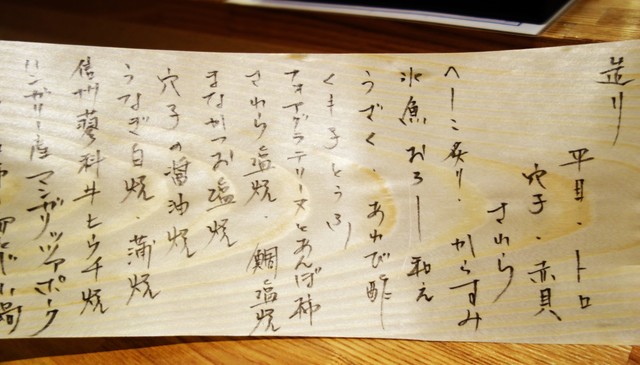 造り
平目・トロ
穴子・赤貝
さわら
へしこ炙り・からすみ
氷魚おろし和え
うざく・あわび酢
くも子とうふ
フォアグラテリーヌとあんぽ柿
さわら塩焼・鯛塩焼
まながつお塩焼
穴子の醤油焼
うなぎ白焼・蒲焼
信州蓼科牛ヒウチ焼
ハンガリー産マンガリッツアポーク